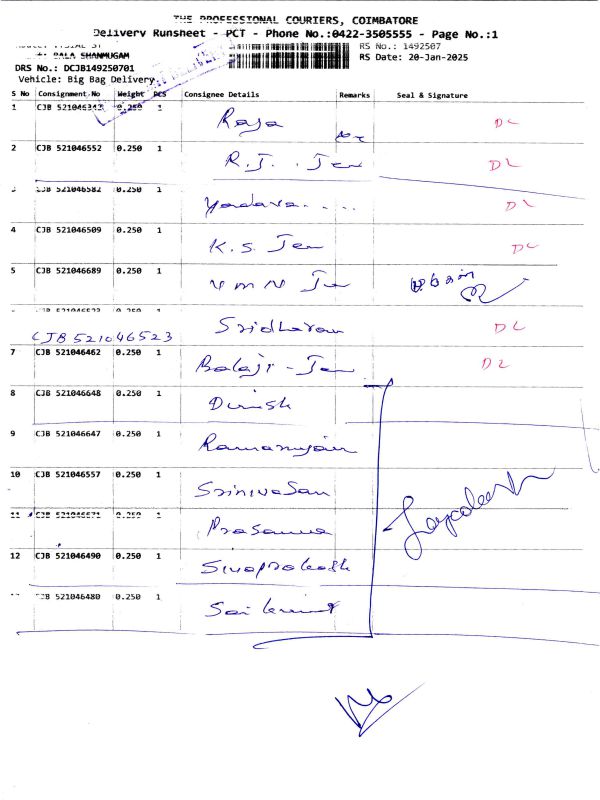 THE PROFESSIONAL COURIERS, COIMBATORE
Delivery Runsheet - PCT - Phone No.:0422-3505555 - Page No.:1
RS No.: 1492507
BALA SHANMUGAM RS Date: 20-Jan-2025
DRS No.: DCJB149250701
Vehicle: Big Bag Delivery
S No Consignment No Weight PCS Consignee Details Remarks Seal & Signature
1 CJB 0.250 1 Raja DL
2 CJB 521046552 0.250 1 R.J. Jen DL
CJB 521046582 0.250 1 Yadava..... DL
4 CJB 521046509 0.250 1 K.S. Jen DL
5 CJB 521046689 0.250 1
CJB 521046523 0.250 1
CJB 521046523 Sridharan DL
7 CJB 521046462 0.250 1 Balaji - Jen DL
8 CJB 521046648 0.250 1 Dinish
9 CJB 521046647 0.250 1 Ramanujam
10 CJB 521046557 0.250 1 Srinivasan
11 CJB 521046671 0.250 1 Prasanna
12 CJB 521046490 0.250 1 Sivaprakash
CJB 521046480 0.250 1 Sai